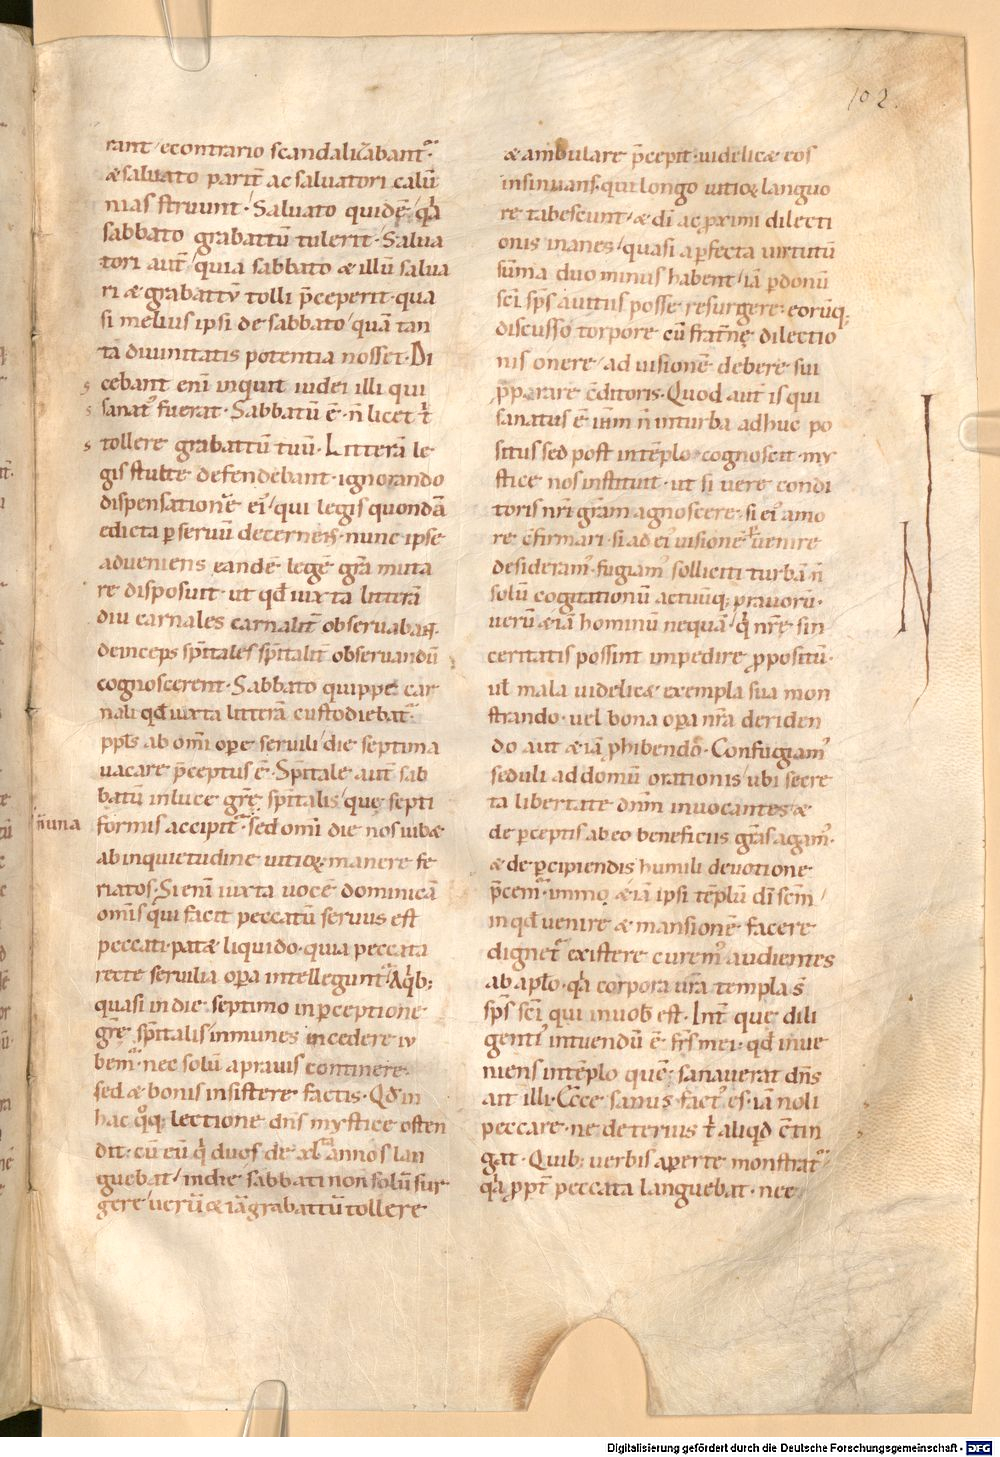 102.
rant / econtrario scandalizabant᷑.
& saluato parit̄ ac saluatori calū
nias struunt. Saluato quidē / qa
sabbato grabattū tulerit. Salua
tori aut̄ / quia sabbato & illū salua
ri & grabattū tolli p̄ceperit. qua
si melius ipsi de sabbato / quā tan
ta diuinitatis potentia nosset. Di
cebant eni inquit iudei illi qui
sanat' fuerat. Sabbatū ē. n̄ licet t
tollere grabattū tuū. Litterā le
gis stulte defendebant. ignorando
dispensationē ei' / qui legis quondā
edicta p seruū decernens. nunc ipse
adueniens eandē legē gra muta
re disposuit. ut qd iuxta litterā
diu carnales carnalit̄ obseruabant.
deinceps spitales spitalit̄ obseruandū
cognoscerent. Sabbato quippe car
nali qd iuxta litterā custodiebat᷑.
ppls ab omi ope seruili / die septima
uacare p̄ceptus ē. Spitale aut̄ sab
batū in luce grę spitalis / quę septi
n̄ una
formis accipit᷑. sed omi die nos iub&
ab inquietudine uitioꝝ manere fe
riatos. Si eni iuxta uocē dominicā
omis qui facit peccatū seruus est
peccati. pat& liquido. quia peccata
recte seruilia opa intellegunt᷑. A qb;
quasi in die septimo in pceptione
grę spitalis inmunes incedere iu
bem᷑. nec solū a prauis continere.
sed & bonis insistere factis. Qd in
hac qoq; lectione dns mystice osten
dit. cū eū qi duos de xl annos lan
guebat / in die sabbati non solū sur
gere / uerū & iā grabattū tollere
& ambulare p̄cepit. uidelic& eos
insinuans. qui longo uitioꝝ languo
re tabescunt / & di ac proximi dilecti
onis inanes / quasi a pfecta uirtutū
sūma duo minus habent / iā p donū
sci sps auitus posse resurgere. eorūq;
discusso torpore cū frat̄nę dilectio
nis onere / ad uisionē debere sui
p̄parare c̄ditoris. Quod aut̄ is qui
sanatus ē ihm n̄ in turba adhuc po
situs sed post in tēplo cognoscit. my
stice nos instituit. ut si uere condi
toris nri grām agnoscere. si ei' amo
re c̄firmari. si ad ei' uisionē puenire
desideram'. fugiam' solliciti turbā n̄
solū cogitationū actuūq; prauorū.
uerū & iā hominū nequā / qi nrę sin
ceritatis possint impedire ppositū.
ul mala uidelic& exempla sua mon
strando. uel bona opa nra deriden
do aut & iā phibendo. Confugiam'
seduli ad domū orationis / ubi secre
ta libertate dnm inuocantes &
de pceptis ab eo beneficiis gras agam'.
& de pcipiendis humili deuotione
p̄cem᷑. immo & iā ipsi tēplū di scm /
in qd uenire & mansionē facere
dignet᷑ existere curem' audientes
ab aplo. qa corpora ura templa s̄
sps sci qui in uob est. Int̄ que dili
genti' intuendū ē frs mei. qd inue
niens in tēplo quē sanauerat dns
ait illi. Ecce sanus fact' es. iā noli
peccare. ne deterius t aliqd c̄tin
gat. Quib; uerbis aperte monstrat᷑.
qa ppt̄ peccata languebat. nec
N
Digitalisierung gefördert durch die Deutsche Forschungsgemeinschaft - DFG